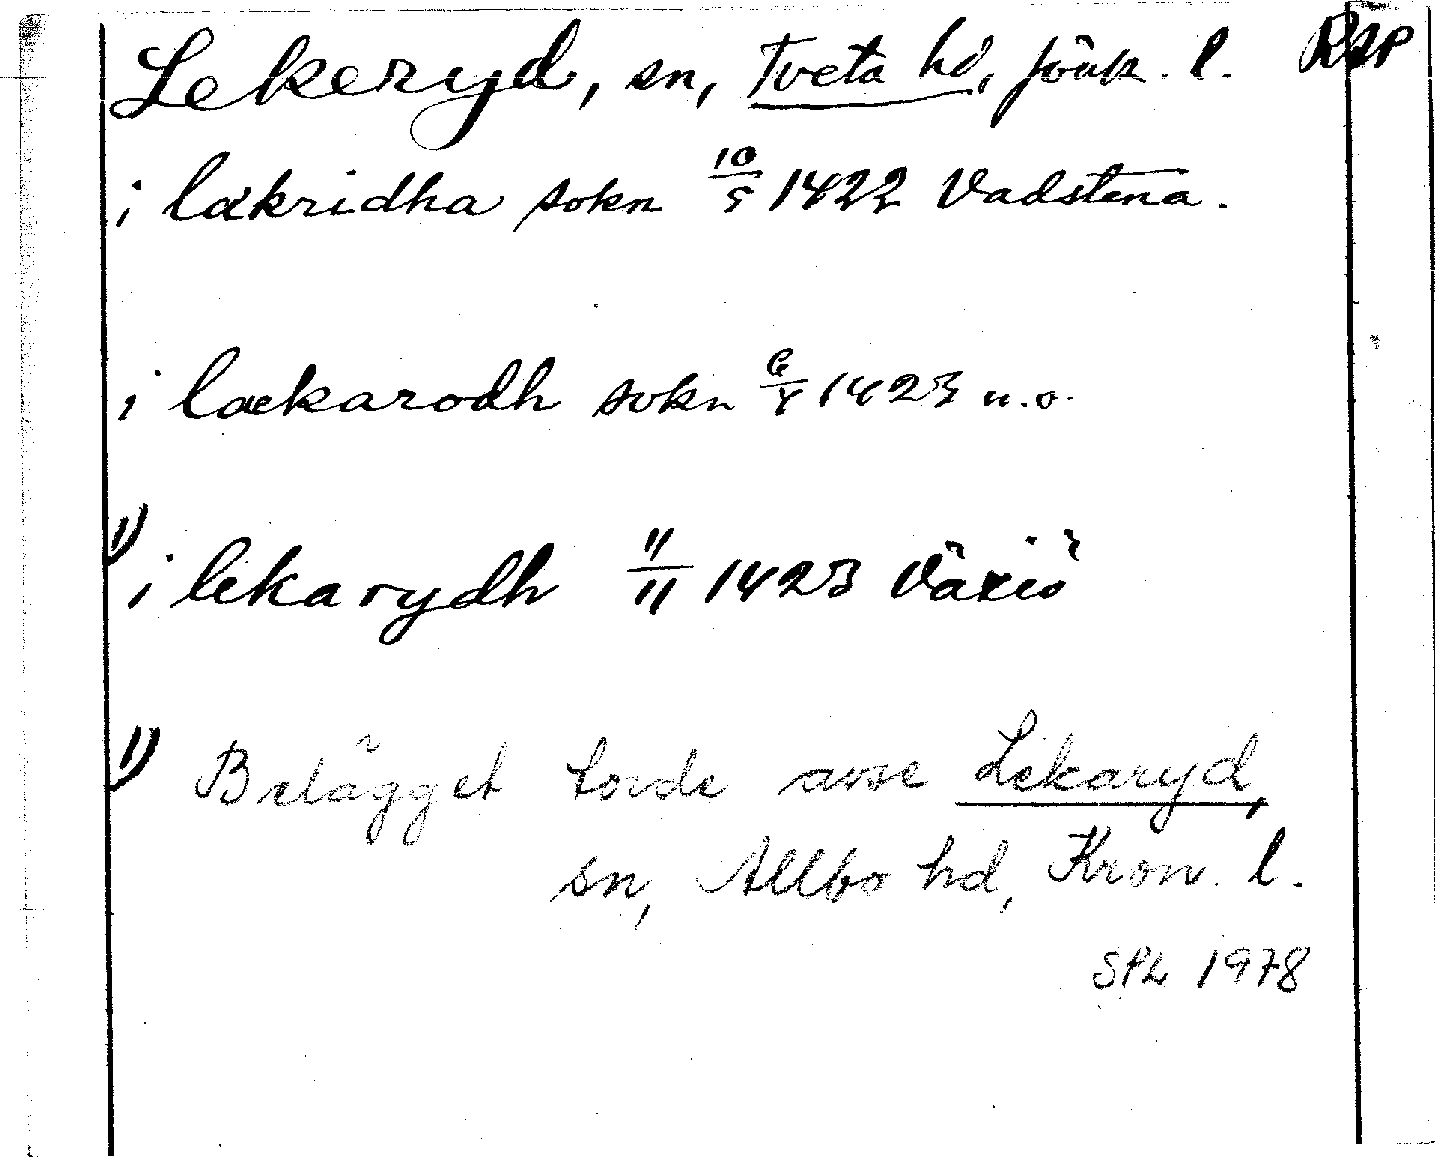 Lekeryd, sn, Tveta hd, Jönk. l. RAP
i läkridha sokn 10/5 1422 Vadstena.
i lackarodh sokn 6/8 1423 u.o.
1) i lekarydh 11/11 1423 Växiö
1) Belägget torde avse Lekaryd,
sn, Allbo hd, Kron. l.
SPL 1978